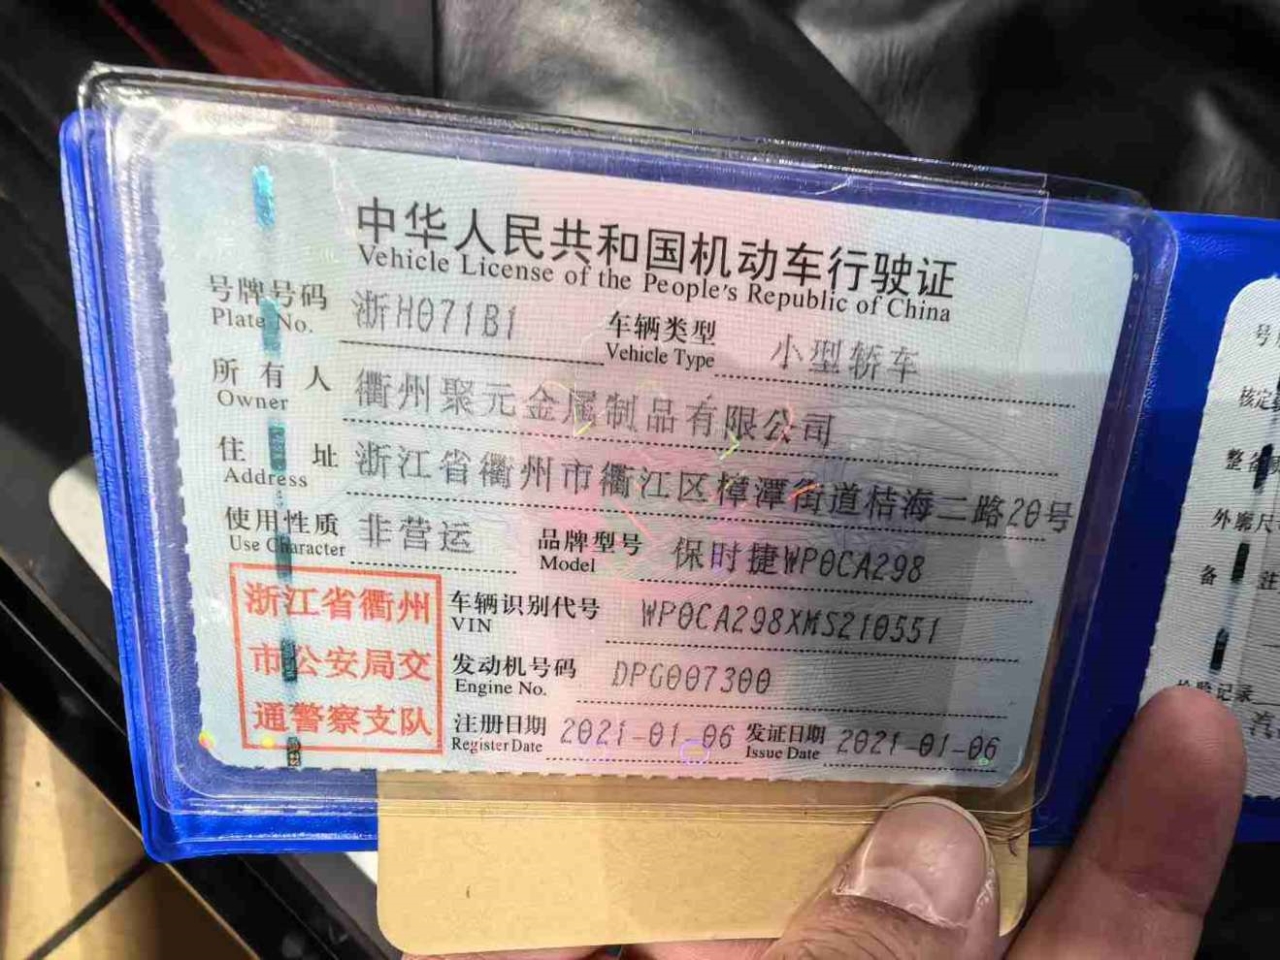 中华人民共和国机动车行驶证
Vehicle License of the People's Republic of China
号牌号码 浙H071B1 车辆类型 小型轿车
Plate No. Vehicle Type
所有人 衢州聚元金属制品有限公司
Owner
住址 浙江省衢州市衢江区樟潭街道桔海二路20号
Address
使用性质 非营运 品牌型号 保时捷WP0CA298
Use Character Model
浙江省衢州
市公安局交
通警察支队
车辆识别代号 WP0CA298XMS210551
VIN
发动机号码 DPG007300
Engine No.
注册日期 2021-01-06 发证日期 2021-01-06
Register Date Issue Date
号
核定
整备
外廓尺
备 注
检验记录